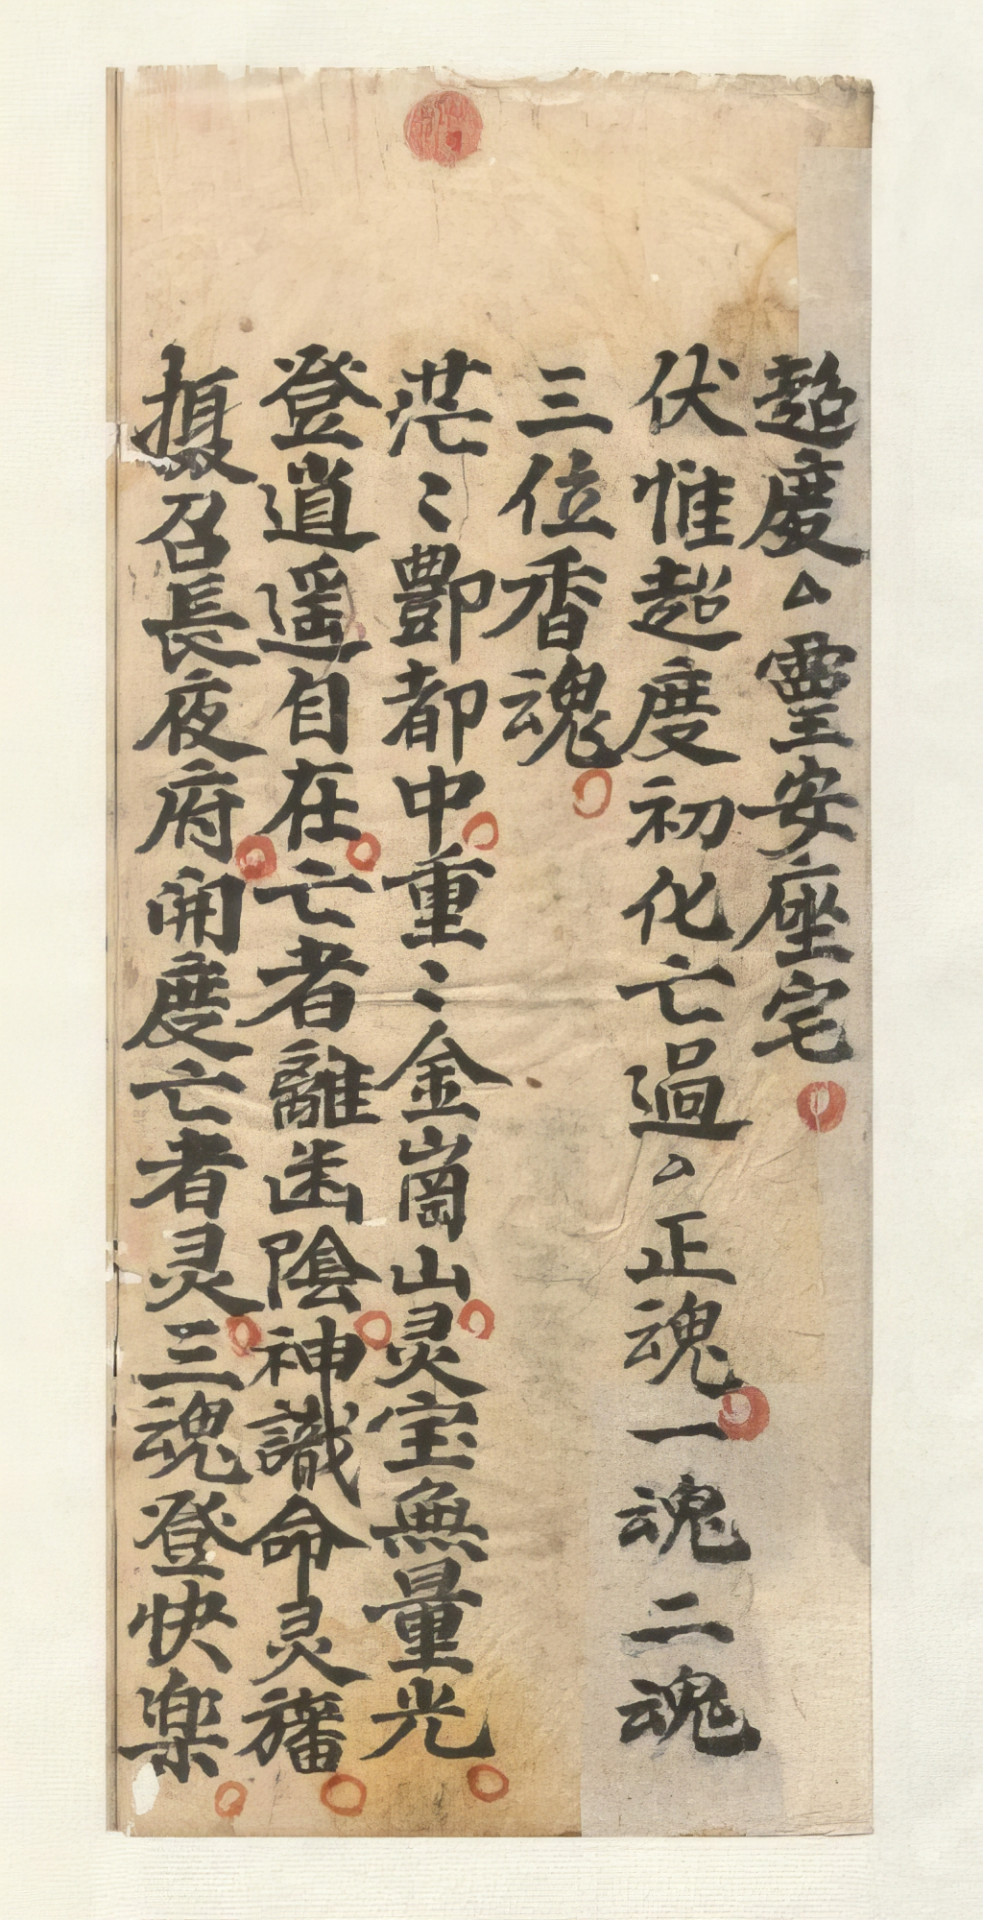 超度厶靈安座宅
伏惟超度初化亡過厶正魂一魂二魂
三位香魂
茫〻酆都中重〻金崗山灵宝無量光
登逍遥自在亡者離幽陰神識命灵旛
攝召長夜府開度亡者灵三魂登快楽